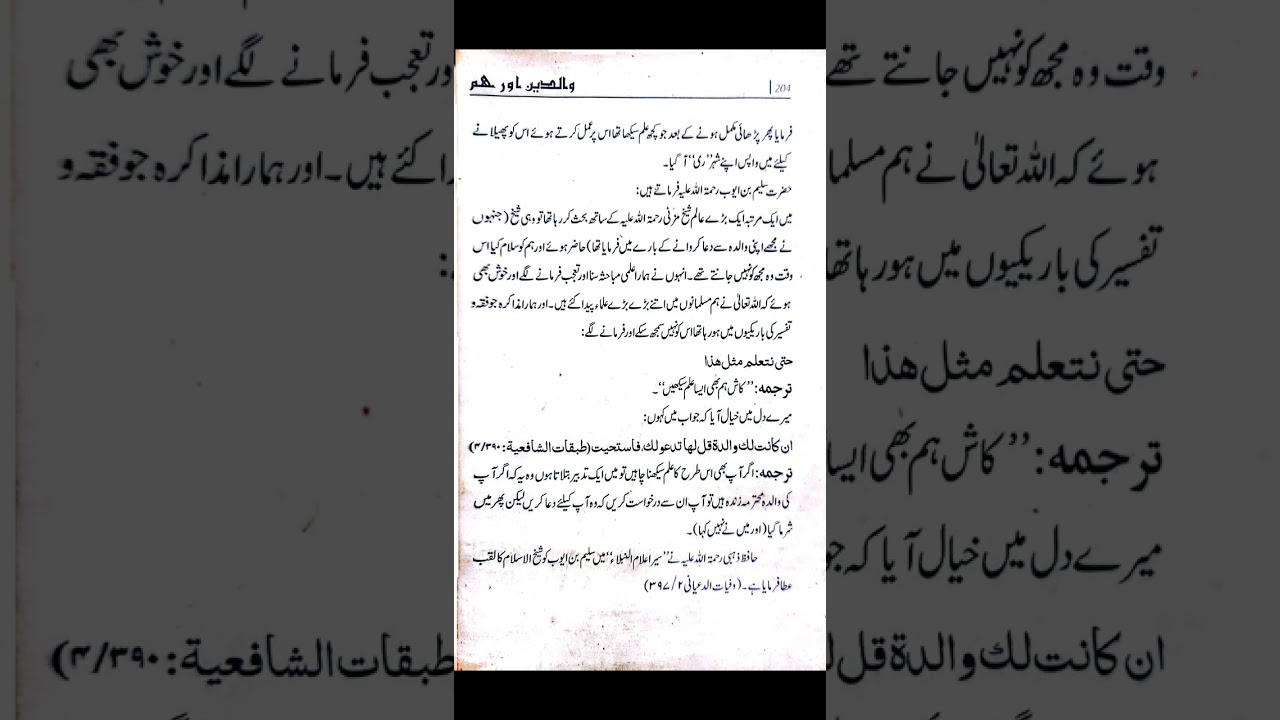 204 | والدین اور ہم
فرمایا پھر پڑھائی مکمل ہونے کے بعد جو کچھ علم سیکھا تھا اس پر عمل کرتے ہوئے اس کو پھیلانے
کیلئے میں واپس اپنے شہر ’’ری‘‘ آ گیا۔
حضرت سلیم بن ایوب رحمۃ اللہ علیہ فرماتے ہیں:
میں ایک مرتبہ ایک بڑے عالم شیخ مزنی رحمۃ اللہ علیہ کے ساتھ بحث کر رہا تھا تو وہی شیخ (جنہوں
نے مجھے اپنی والدہ سے دعا کروانے کے بارے میں فرمایا تھا) حاضر ہوئے اور ہم کو سلام کیا اس
وقت وہ مجھ کو نہیں جانتے تھے۔ انہوں نے ہمارا علمی مباحثہ سنا اور تعجب فرمانے لگے اور خوش بھی
ہوئے کہ اللہ تعالیٰ نے ہم مسلمانوں میں اتنے بڑے بڑے علماء پیدا کئے ہیں۔ اور ہمارا مذاکرہ جو فقہ و
تفسیر کی باریکیوں میں ہو رہا تھا اس کو نہیں سمجھ سکے اور فرمانے لگے:
حتی نتعلم مثل ھذا
ترجمہ: ’’کاش ہم بھی ایسا علم سیکھیں‘‘۔
میرے دل میں خیال آیا کہ جواب میں کہوں:
ان کانت لك والدة قل لها تدعو لك فاستحیت (طبقات الشافعیة: ۴/۳۹۰)
ترجمہ: اگر آپ بھی اس طرح کا علم سیکھنا چاہیں تو میں ایک تدبیر بتلاتا ہوں وہ یہ کہ اگر آپ
کی والدہ محترمہ زندہ ہیں تو آپ ان سے درخواست کریں کہ وہ آپ کیلئے دعا کریں لیکن پھر میں
شرما گیا (اور میں نے نہیں کہا)۔
حافظ ذہبی رحمۃ اللہ علیہ نے ’’سیر اعلام النبلاء‘‘ میں سلیم بن ایوب کو شیخ الاسلام کا لقب
عطا فرمایا ہے۔ (وفیات الدعیانی ۲/۳۹۷)